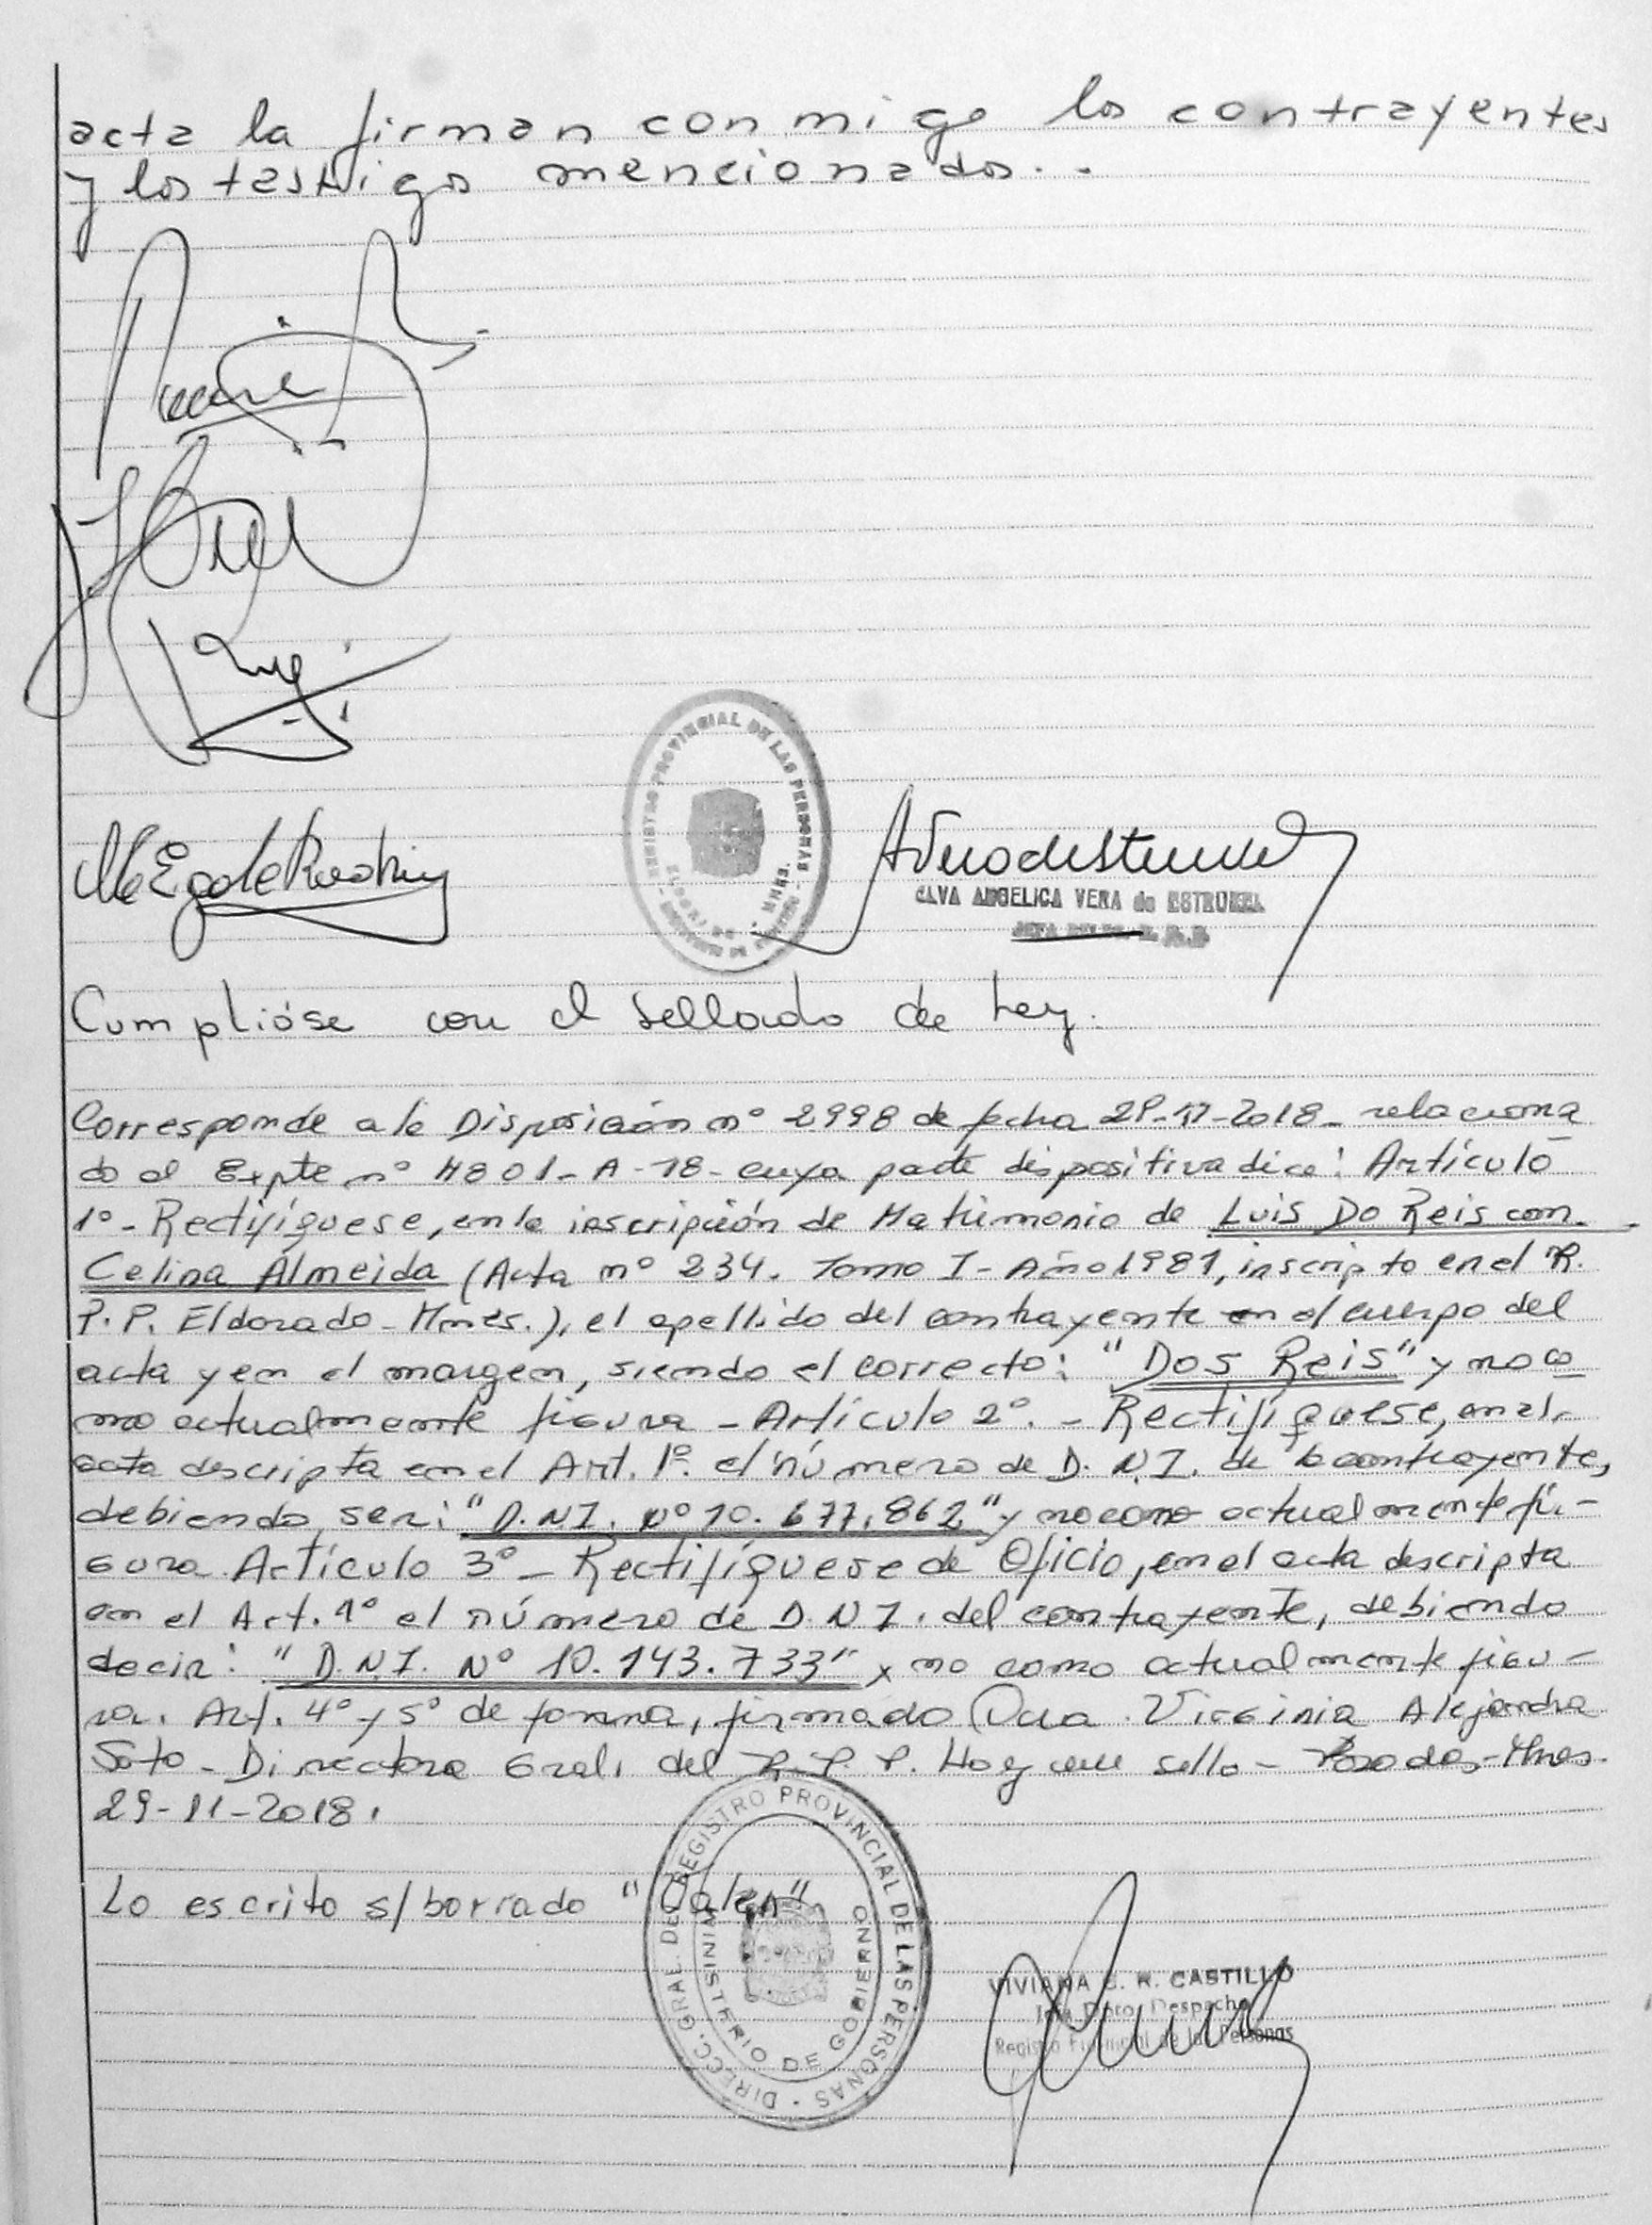 acta la firman conmigo los contrayentes
y los testigos mencionados..
REGISTRO PROVINCIAL DE LAS PERSONAS
ELVA ANGELICA VERA de ESTRUBEL
Cumplióse con el sellado de Ley.
Corresponde a la Disposición nº 2998 de fecha 29-11-2018- relaciona
do al Expte nº 4801-A-18- cuya parte dispositiva dice: Artículo
1º-Rectifíquese, en la inscripción de Matrimonio de Luis Do Reis con
Celina Almeida (Acta nº 234. Tomo I- Año 1981, inscripto en el R.
P.P. Eldorado-Mnes.), el apellido del contrayente en el cuerpo del
acta y en el margen, siendo el correcto: "Dos Reis" y no co
mo actualmente figura - Artículo 2º.- Rectifíquese, en el
acta descripta en el Art. 1º. el número de D.N.I. de la contrayente,
debiendo ser: "D.N.I. Nº 10.677.862" y no como actualmente fi-
gura. Artículo 3º- Rectifíquese de Oficio, en el acta descripta
en el Art. 1º el número de D.N.I. del contrayente, debiendo
decir: "D.N.I. Nº 10.143.733" y no como actualmente figu-
ra. Art. 4º y 5º de forma, firmado Dra. Virginia Alejandra
Soto - Directora Gral. del R.P.P. Hay un sello - Posadas-Mnes.
29-11-2018.
Lo escrito s/borrado "Valen"
DIRECC. GRAL. DEL REGISTRO PROVINCIAL DE LAS PERSONAS
MINISTERIO DE GOBIERNO
VIVIANA G. R. CASTILLO
Jefa Dpto. Despacho
Registro Provincial de las Personas